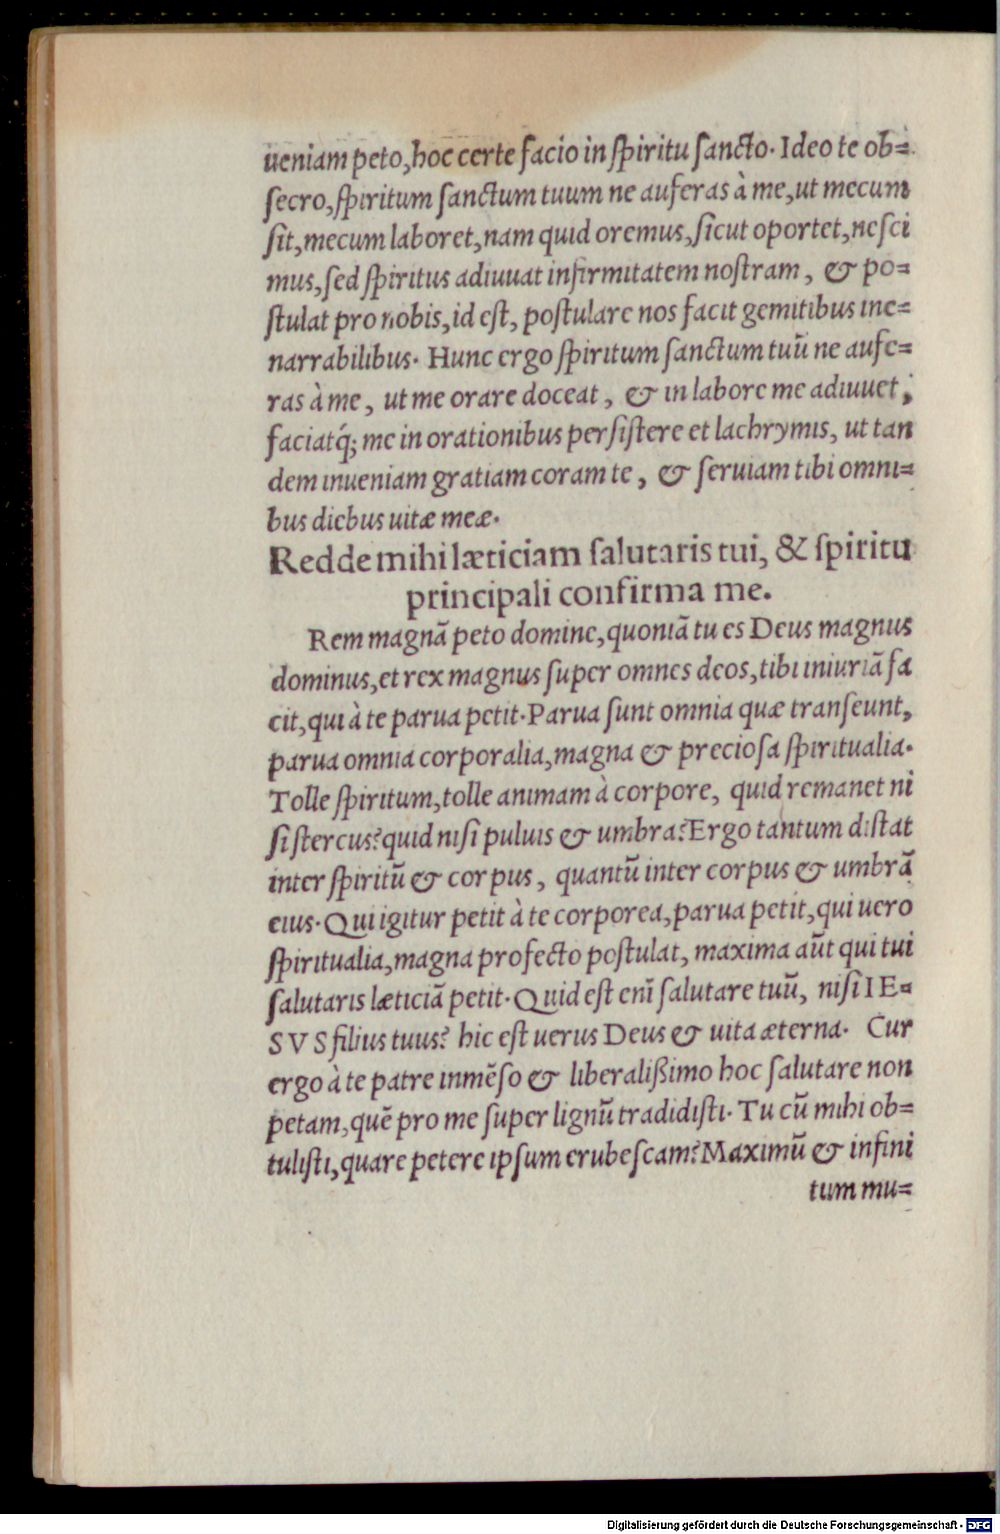 ueniam peto, hoc certe facio in ſpiritu ſancto. Ideo te ob=
ſecro, ſpiritum ſanctum tuum ne auferas à me, ut mecum
ſit, mecum laboret, nam quid oremus, ſicut oportet, neſci
mus, ſed ſpiritus adiuuat infirmitatem noſtram, & po=
ſtulat pro nobis, id eſt, poſtulare nos facit gemitibus ine=
narrabilibus. Hunc ergo ſpiritum ſanctum tuū ne aufe=
ras à me, ut me orare doceat, & in labore me adiuuet,
faciatq́; me in orationibus perſiſtere et lachrymis, ut tan
dem inueniam gratiam coram te, & ſeruiam tibi omni=
bus diebus uitæ meæ.
Redde mihi læticiam ſalutaris tui, & ſpiritu
principali confirma me.
Rem magnā peto domine, quoniā tu es Deus magnus
dominus, et rex magnus ſuper omnes deos, tibi iniuriā fa
cit, qui à te parua petit. Parua ſunt omnia quæ tranſeunt,
parua omnia corporalia, magna & precioſa ſpiritualia.
Tolle ſpiritum, tolle animam à corpore, quid remanet ni
ſi ſtercus? quid niſi puluis & umbra? Ergo tantum diſtat
inter ſpiritū & corpus, quantū inter corpus & umbrā
eius. Qui igitur petit à te corporea, parua petit, qui uero
ſpiritualia, magna profecto poſtulat, maxima aūt qui tui
ſalutaris læticiā petit. Quid eſt enī ſalutare tuū, niſi IE=
SVS filius tuus? hic eſt uerus Deus & uita æterna. Cur
ergo à te patre inmēſo & liberalißimo hoc ſalutare non
petam, quē pro me ſuper lignū tradidiſti. Tu cū mihi ob=
tuliſti, quare petere ipſum erubeſcam? Maximū & infini
tum mu=
Digitalisierung gefördert durch die Deutsche Forschungsgemeinschaft - DFG